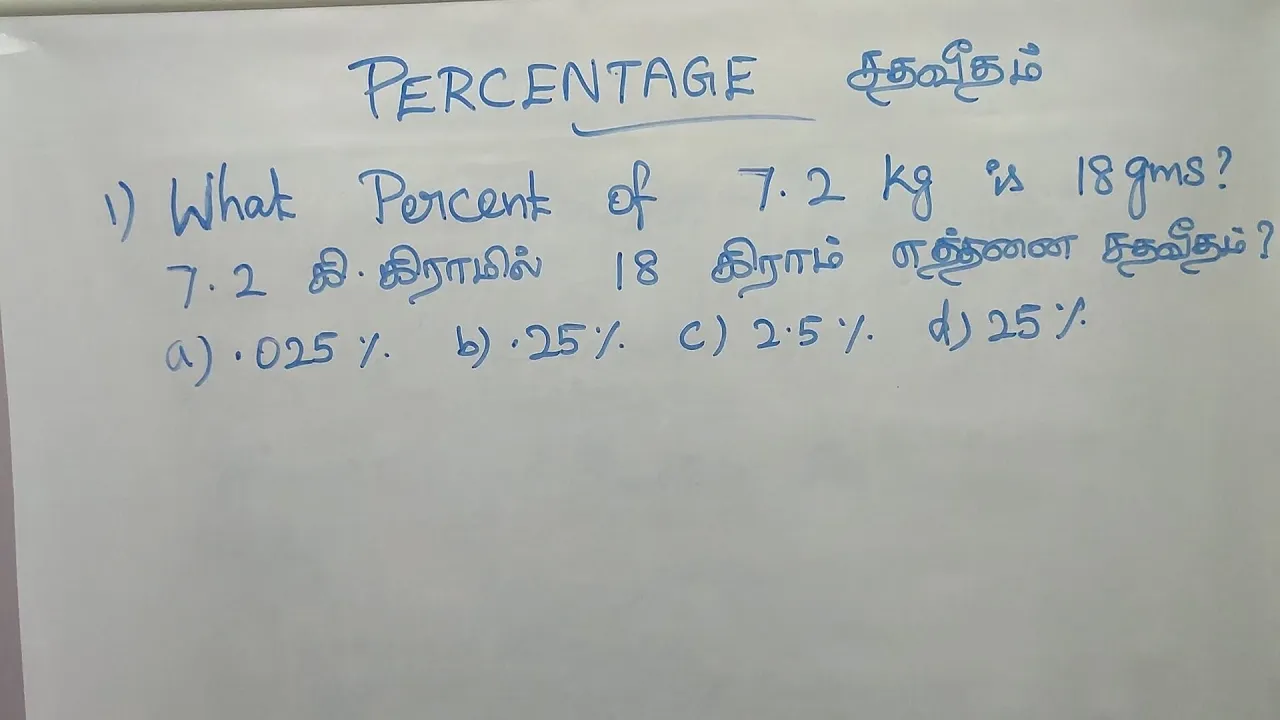 PERCENTAGE சதவீதம்
1) What Percent of 7.2 kg is 18gms?
7.2 கி.கிராமில் 18 கிராம் எத்தனை சதவீதம்?
a) .025 % b) .25 % c) 2.5 % d) 25 %